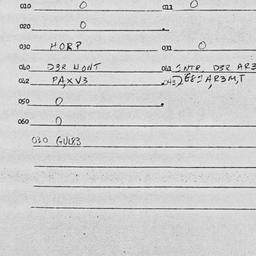 010 0 011 0
020 0
030 HORP 031 0
040 D3R WONT 041 INTR, D3R AR3
042 PA,XV3 043
050 0
060 0
030 GUL83